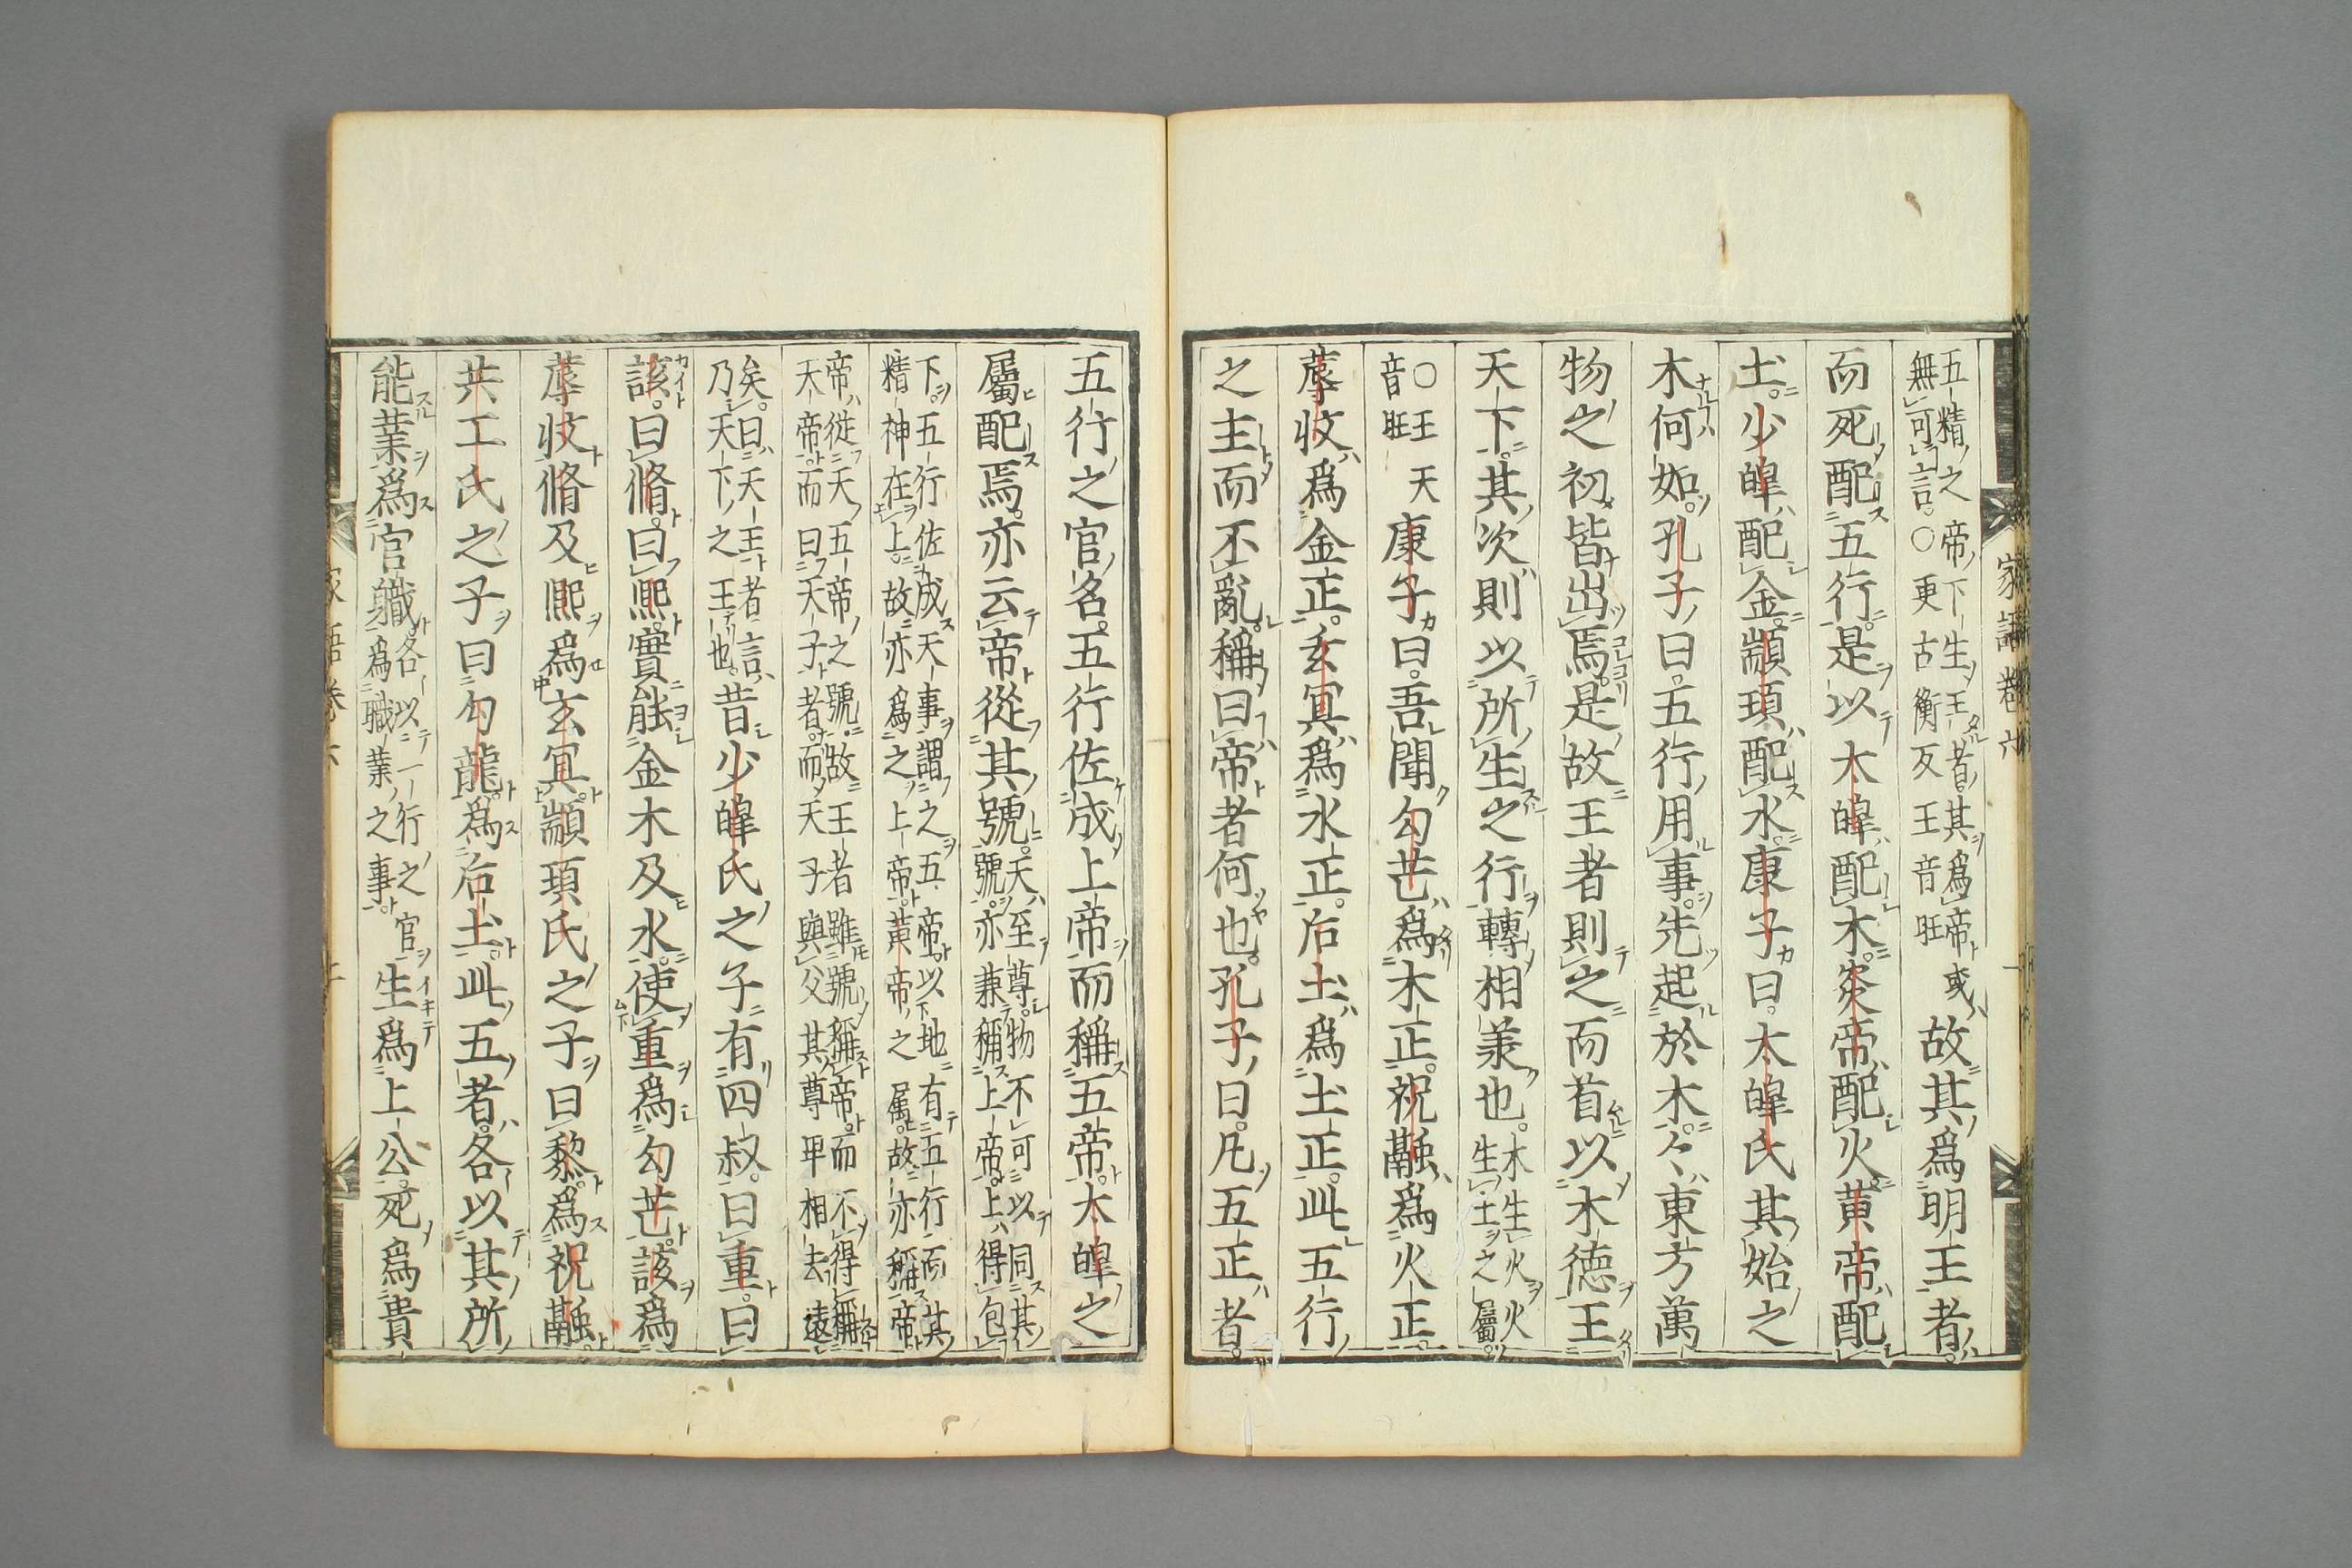 五精之帝下生王者其爲帝或無可言〇更古衡反王音旺故其爲明王者
而死配五行是以太皥配木炎帝配火黄帝配
土少皥配金顓頊配水康子曰太皥氏其始之
木何如孔子曰五行用事先起於木々東方萬
物之初皆出焉是故王者則之而首以木徳王
天下其次則以所生之行轉相兼也木生火火生土之屬
〇王天音旺康子曰吾聞勾芒爲木正祝融爲火正
蓐收爲金正玄冥爲水正后土爲土正此五行
之主而不亂稱曰帝者何也孔子曰凡五正者
五行之官名五行佐成上帝而稱五帝太皥之
屬配焉亦云帝從其號天至尊物不可以同其號亦兼稱上帝上得包
下五行佐成天事謂之五帝以地有五行而其精神在上故亦爲之上帝黄帝之属故亦稱帝
帝從天五帝之號故王者雖號稱帝而不得稱天帝而曰天子者而天子與父其尊卑相去遠
矣曰天王者言乃天下之王也昔少皥氏之子有四叔曰重曰
該曰脩曰熈實能金木及水使重爲勾芒該爲
蓐收脩及熈爲玄冥顓頊氏之子曰黎爲祝融
共工氏之子曰勾龍爲后土此五者各以其所
能業爲官職各以一行之官爲職業之事生爲上公死爲貴
家語卷六